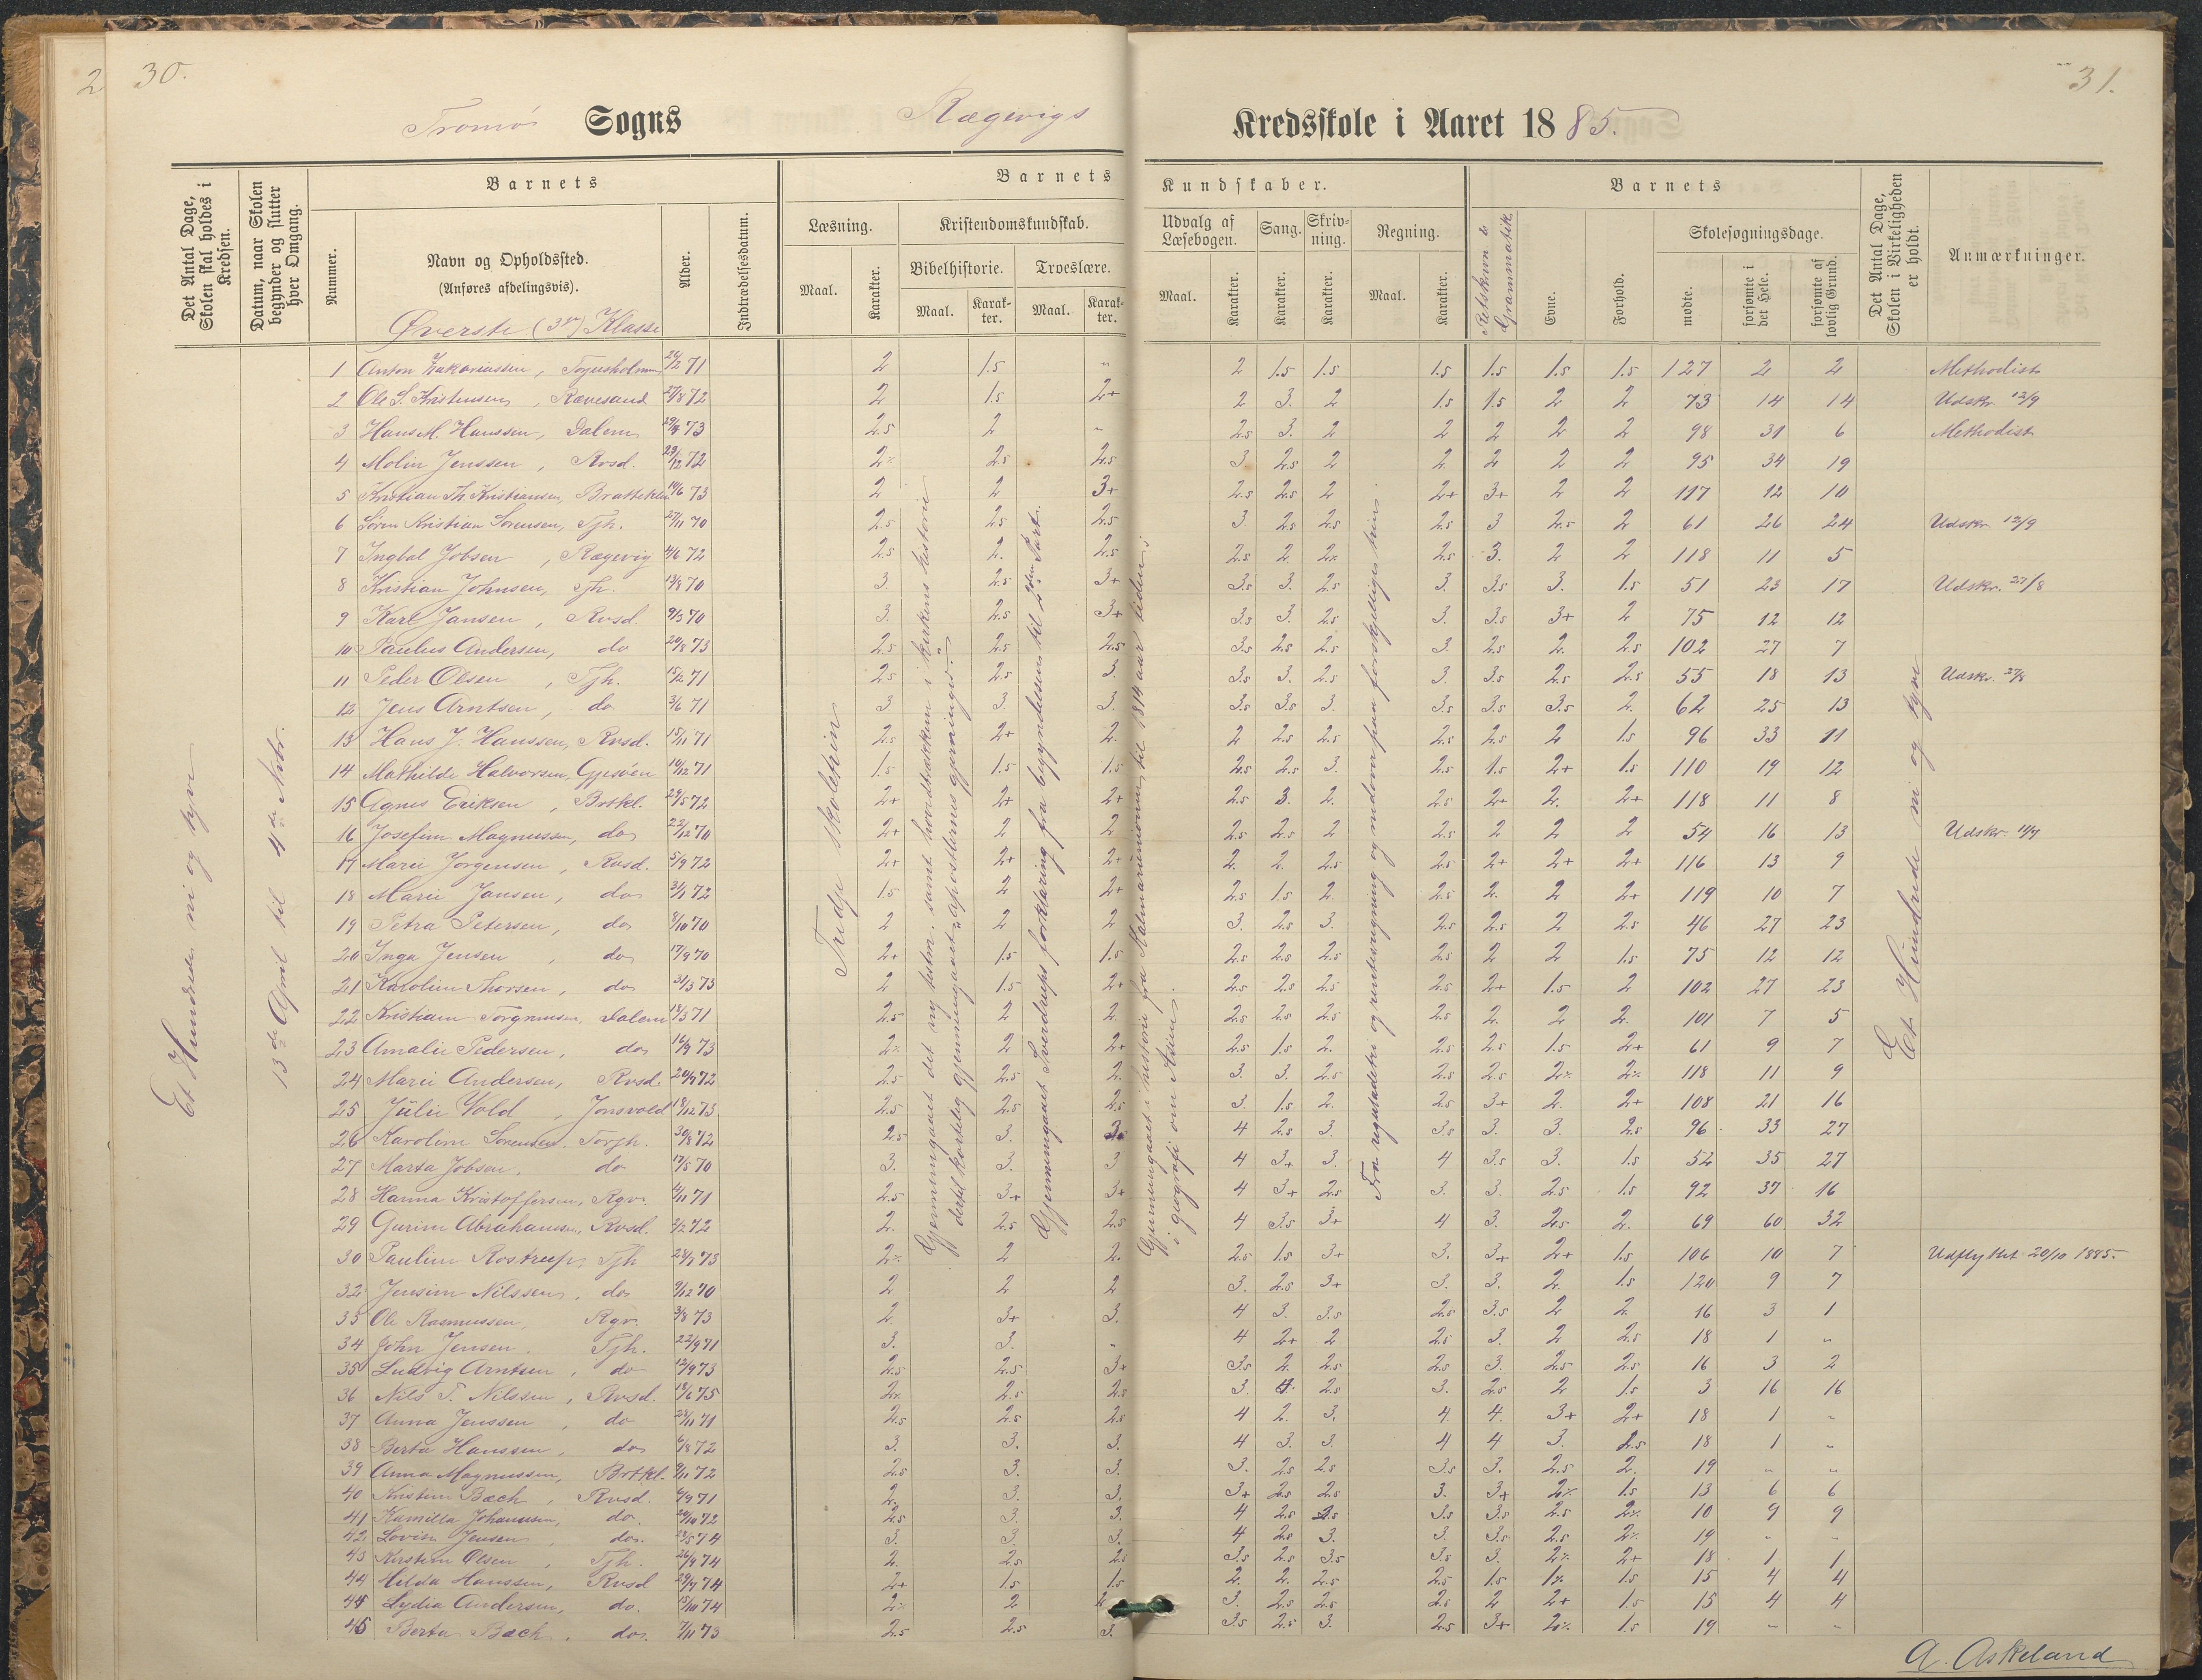 2 30.
31.
Tromø Sogns Rægevigs Kredsskole i Aaret 1885.
Det Antal Dage, Skolen skal holdes i Kredsen.
Datum, naar Skolen begynder og slutter hver Omgang.
Barnets
Barnets Kundskaber.
Barnets
Det Antal Dage, Skolen i Virkeligheden er holdt.
Anmærkninger.
Nummer.
Navn og Opholdssted.
(Anføres afdelingsvis).
Øverste (3die) Klasse
Alder.
Indtrædelsesdatum.
Læsning.
Kristendomskundskab.
Bibelhistorie.
Troeslære.
Udvalg af Læsebogen.
Sang.
Skrivning.
Regning.
Retskrivn. & Grammatik
Evne.
Forhold.
Skolesøgningsdage.
Maal. Karakter. Maal. Karakter. Maal. Karakter. Maal. Karakter. Karakter. Karakter. Maal. Karakter.
mødte. forsømte i det Hele. forsømte af lovlig Grund.
Et Hundrede ni og tyve
13de April til 4de Novbr.
Tredje skoletrin
Gjennemgaaet det ny testm. samt hovedtrækkene i kirkens historie
dertil kortelig gjennemgaaet "apostlernes gjerninger."
Gjennemgaaet Sverdrups forklaring fra begyndelsen til 2den Part.
Gjennemgaaet i historie fra Kalmarunionen til 1814 aar tiden;
i geografi om Asien.
Fra reguladetri og rentesregning og nedover paa forskjellige trin.
Et Hundrede ni og tyve
1 Anton Zakariassen, Torjusholmen 26/2 71 2 1.5 " 2 1.5 1.5 1.5 1.5 1.5 1.5 127 2 2 Methodist
2 Ole S. Kristensen, Rævesand 27/8 72 2 1.5 2+ 2 3. 2 1.5 1.5 2 2 73 14 14 Udskr. 12/9
3 Hans M. Hanssen, Dalem 73 2.5 2 " 2.5 3. 2 2 2 2 2 98 31 6 Methodist
4 Molin Jenssen, Rvsd. 29/12 72 2% 2.5 2.5 3 2.5 2 2 2 2 2 95 34 19
5 Kristian Th. Kristiansen, Bratteklev 19/6 73 2 2 3+ 2.5 2.5 2 2+ 3+ 2 2 117 12 10
6 Søren Kristian Sørensen, Tjh. 27/11 70 2.5 2.5 2.5 3 2.5 2.5 2.5 3 2.5 2 61 26 24 Udskr. 12/9
7 Ingbal Jobsen, Rægevig 4/6 72 2.5 2. 2.5 2.5 2 2% 2.5 3. 2 2 118 11 5
8 Kristian Johnsen, Tjh. 13/8 70 3. 2.5 3+ 3.5 3. 2.5 3. 3.5 3. 1.5 51 23 17 Udskr. 27/8
9 Karl Jansen, Rvsd 9/3 70 3. 2.5 3+ 3.5 3. 2.5 3. 3.5 3+ 2 75 12 12
10 Paulus Andersen, do 24/8 73 2.5 2.5 2.5 3.5 2.5 2.5 3. 2.5 2. 2.5 102 27 7
11 Peder Olsen, Tjh. 15/2 71 2.5 2.5 3. 3.5 3. 2.5 3. 3.5 2.5 2.5 55 18 13 Udskr. 27/8
12 Jens Arntsen, do 3/6 71 3. 3. 3. 3.5 3.5 3. 3.5 3.5 3.5 2. 62 25 13
13 Hans J. Hanssen, Rvsd. 15/11 71 2.5 2+ 2. 2 2.5 2.5 2.5 2.5 2 1.5 96 33 11
14 Mathilde Halvorsen, Gjesøen 19/12 71 1.5 1.5 1.5 2.5 2.5 3. 2.5 1.5 2+ 1.5 110 19 12
15 Agnes Eriksen, Brtkl. 29/5 72 2+ 2+ 2+ 2.5 3. 2. 2.5 2+ 2. 2+ 118 11 8
16 Josefine Magnussen, do 22/12 70 2+ 2 2 2.5 2.5 2 2.5 2 2 2 54 16 13 Udskr.
17 Marie Jørgensen, Rvsd. 5/9 72 2+ 2+ 2+ 2. 2. 2.5 2.5 2+ 2+ 2+ 116 13 9
18 Marie Jansen, do 31/1 72 1.5 2 2+ 2.5 1.5 2. 2.5 2. 2 2+ 119 10 7
19 Petra Petersen, do 8/10 70 2 2 2 3. 2.5 3. 2.5 2.5 2 2.5 46 27 23
20 Inga Jensen, do 17/9 70 2+ 1.5 1.5 2.5 2.5 2.5 2.5 2 2 1.5 75 12 12
21 Karoline Thorsen, do 31/3 73 2 1.5 2+ 2.5 2.5 2.5 2.5 2+ 1.5 2 102 27 23
22 Kristiane Torgmusen, Dalem 18/3 71 2.5 2 2. 2.5 2.5 2.5 2.5 2. 2 2. 101 7 5
23 Amalie Pedersen, do 16/9 73 2% 2 2+ 2.5 1.5 2. 2.5 2.5 1.5 2+ 61 9 7
24 Marie Andersen, Rvsd. 20/9 72 2.5 2.5 2. 3. 3. 2.5 2.5 2.5 2% 2% 118 11 9
25 Julie Vold, Jonsvold 18/12 73 2.5 2.5 2.5 3. 1.5 2. 2.5 3+ 2. 2+ 108 21 16
26 Karoline Sørensen, Torjh. 30/8 72 2.5 3. 3. 4 2.5 3. 3.5 3. 3. 2.5 96 33 27
27 Marta Jobsen, do 17/5 70 3. 3. 3 4 3+ 3. 4 3.5 3. 1.5 52 35 27
28 Hanna Kristoffersen, Rgv. 4/11 71 2.5 3+ 3+ 4 3+ 2.5 3. 3. 2.5 1.5 92 37 16
29 Gurine Abrahamsen, Rvsd. 2/2 72 2. 2.5 2.5 4 3.5 3+ 4 3. 2.5 2. 69 60 32
30 Pauline Rostrup, Tjh 23/7 73 2% 2 2. 2.5 1.5 3+ 3. 3+ 2+ 1.5 106 10 7 Udflyttet 20/10 1885.
32 Jensine Nilssen, do 9/12 70 2 2 2 3. 2.5 3+ 3. 3. 2 1.5 120 9 7
33 Ole Rasmussen, Rgv. 3/8 73 2. 3+ 3. 4 3. 3.5 2.5 3.5 2 2. 16 3 1
34 John Jensen, Tjh. 22/9 71 3. 3. " 4 2+ 2 2.5 3. 2 2.5 18 1 "
35 Ludvig Arntsen, do 12/9 73 2.5 2.5 3+ 3.5 2. 2.5 2.5 3. 2.5 2.5 16 3 2
36 Nils T. Nilssen, Rvsd. 18/6 75 2% 2.5 2.5 3. 4. 2.5 3. 2.5 2 1.5 3 16 16
37 Anna Jenssen, do 28/11 71 2.5 2.5 2.5 4 2. 3. 4 4. 3+ 2+ 18 1 "
38 Berta Hanssen, do 6/8 72 3. 3. 3. 4 3. 3. 4 4 3. 2.5 18 1 "
39 Anna Magnussen, Brtkl. 9/11 72 2.5 3. 3. 3. 2.5 2.5 3.5 3. 2.5 2. 19 " "
40 Kristine Bach, Rvsd. 6/9 71 2. 3. 3. 3+ 2.5 2.5 3. 3+ 2% 1.5 13 6 6
41 Kamilla Johannesen, do. 20/10 72 2.5 3. 3. 4 2.5 2.5 3.5 3.5 2.5 2% 10 9 9
42 Lovise Jensen, do. 23/5 74 3. 3. 3. 4 2.5 3. 3. 3.5 2.5 2% 19 " "
43 Kirstine Olsen, Tjh. 26/9 74 2. 2.5 2.5 3.5 2.5 3.5 3.5 3. 2% 2+ 18 1 1
44 Hilda Hanssen, Rvsd 29/7 74 2+ 1.5 1.5 2. 2. 2.5 2.5 1.5 1% 1.5 15 4 4
44 Lydia Andersen, do. 15/10 74 2% 2 2 3. 2.5 2.5 2.5 2 2+ 1.5 15 4 4
45 Berta Bach, do. 7/11 73 2.5 2.5 3. 3.5 2.5 3. 2.5 3+ 2% 1.5 19 " "
A. Askeland